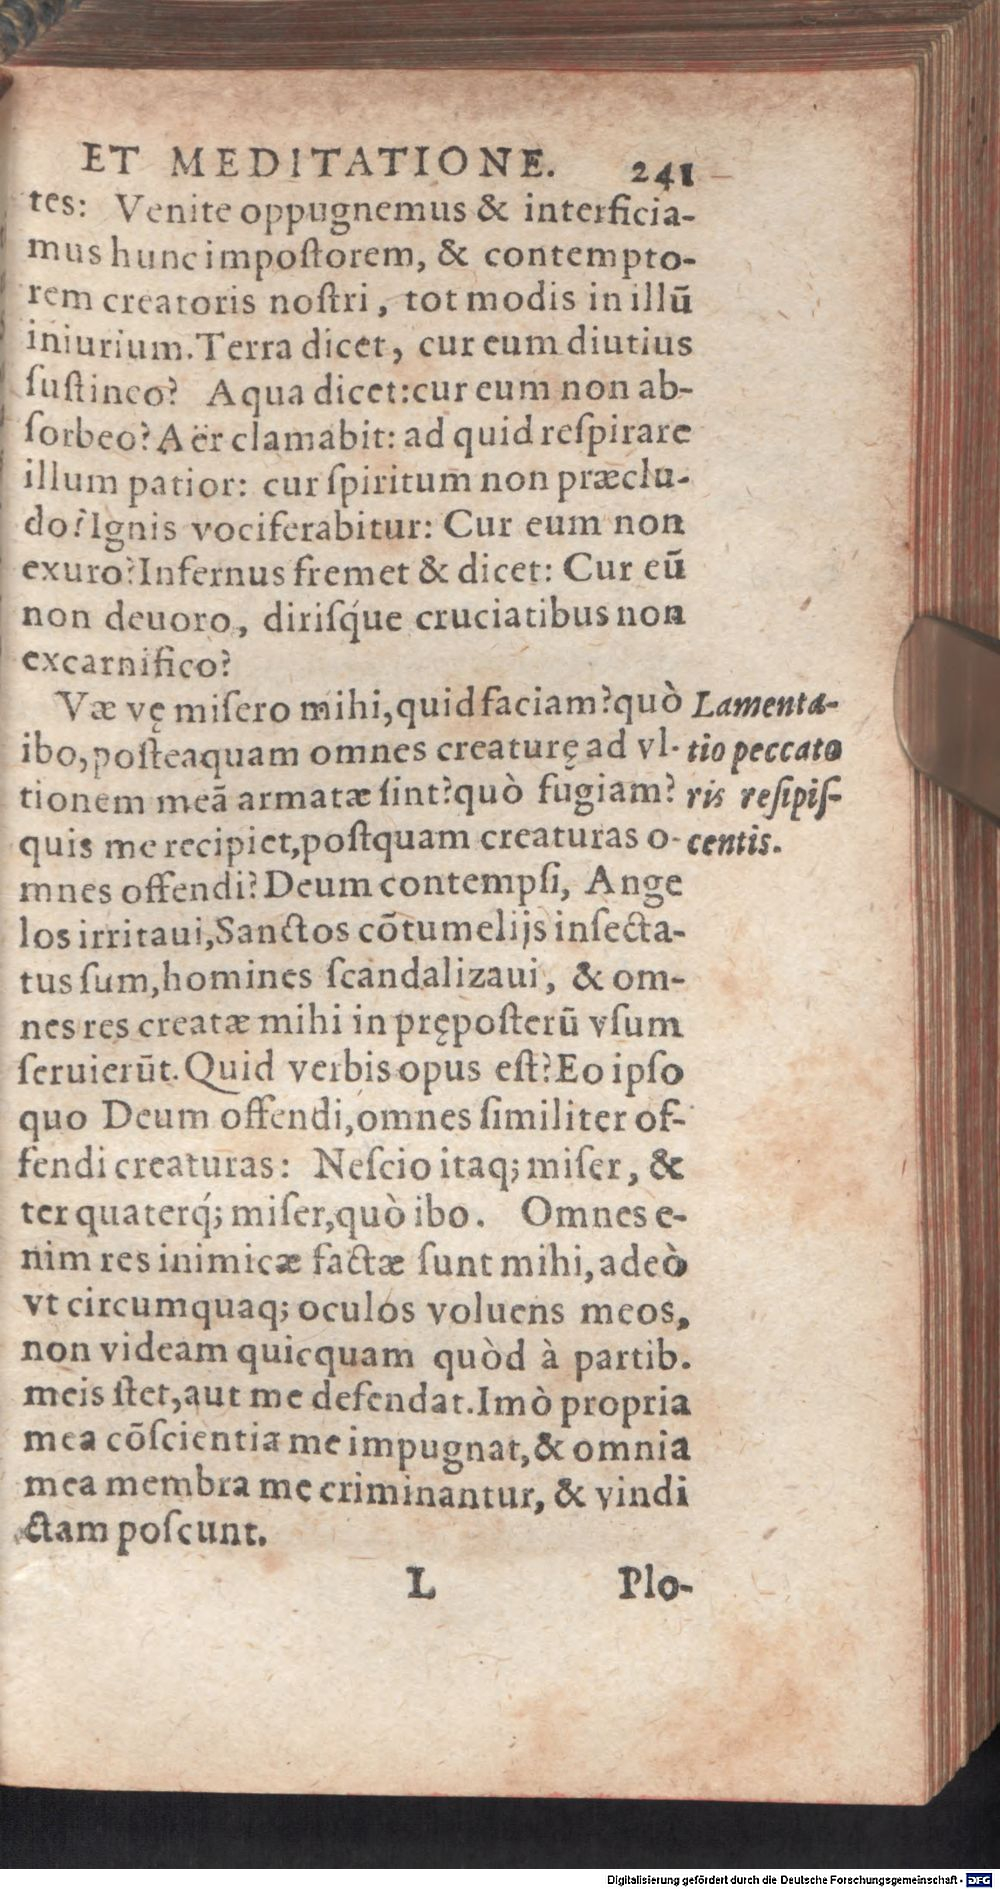 ET MEDITATIONE. 241
tes: Venite oppugnemus & interficia-
mus hunc impoſtorem, & contempto-
rem creatoris noſtri, tot modis in illū
iniurium. Terra dicet, cur eum diutius
ſuſtineo? Aqua dicet: cur eum non ab-
ſorbeo? Aër clamabit: ad quid reſpirare
illum patior: cur ſpiritum non præclu-
do? Ignis vociferabitur: Cur eum non
exuro? Infernus fremet & dicet: Cur eū
non deuoro, diriſq́ue cruciatibus non
excarnifico?
Væ vę miſero mihi, quid faciam? quò
ibo, poſteaquam omnes creaturę ad vl-
tionem meā armatæ ſint? quò fugiam?
quis me recipiet, poſtquam creaturas o-
mnes offendi? Deum contempſi, Ange
los irritaui, Sanctos cōtumelijs inſecta-
tus ſum, homines ſcandalizaui, & om-
nes res creatæ mihi in prępoſterū vſum
ſeruierūt. Quid verbis opus eſt? Eo ipſo
quo Deum offendi, omnes ſimiliter of-
fendi creaturas: Neſcio itaq; miſer, &
ter quaterq́; miſer, quò ibo. Omnes e-
nim res inimicæ factæ ſunt mihi, adeò
vt circumquaq; oculos voluens meos,
non videam quicquam quòd à partib.
meis ſtet, aut me defendat. Imò propria
mea cōſcientia me impugnat, & omnia
mea membra me criminantur, & vindi
ctam poſcunt.
Lamenta-
tio peccato
ris reſipiſ-
centis.
L Plo-
Digitalisierung gefördert durch die Deutsche Forschungsgemeinschaft - DFG